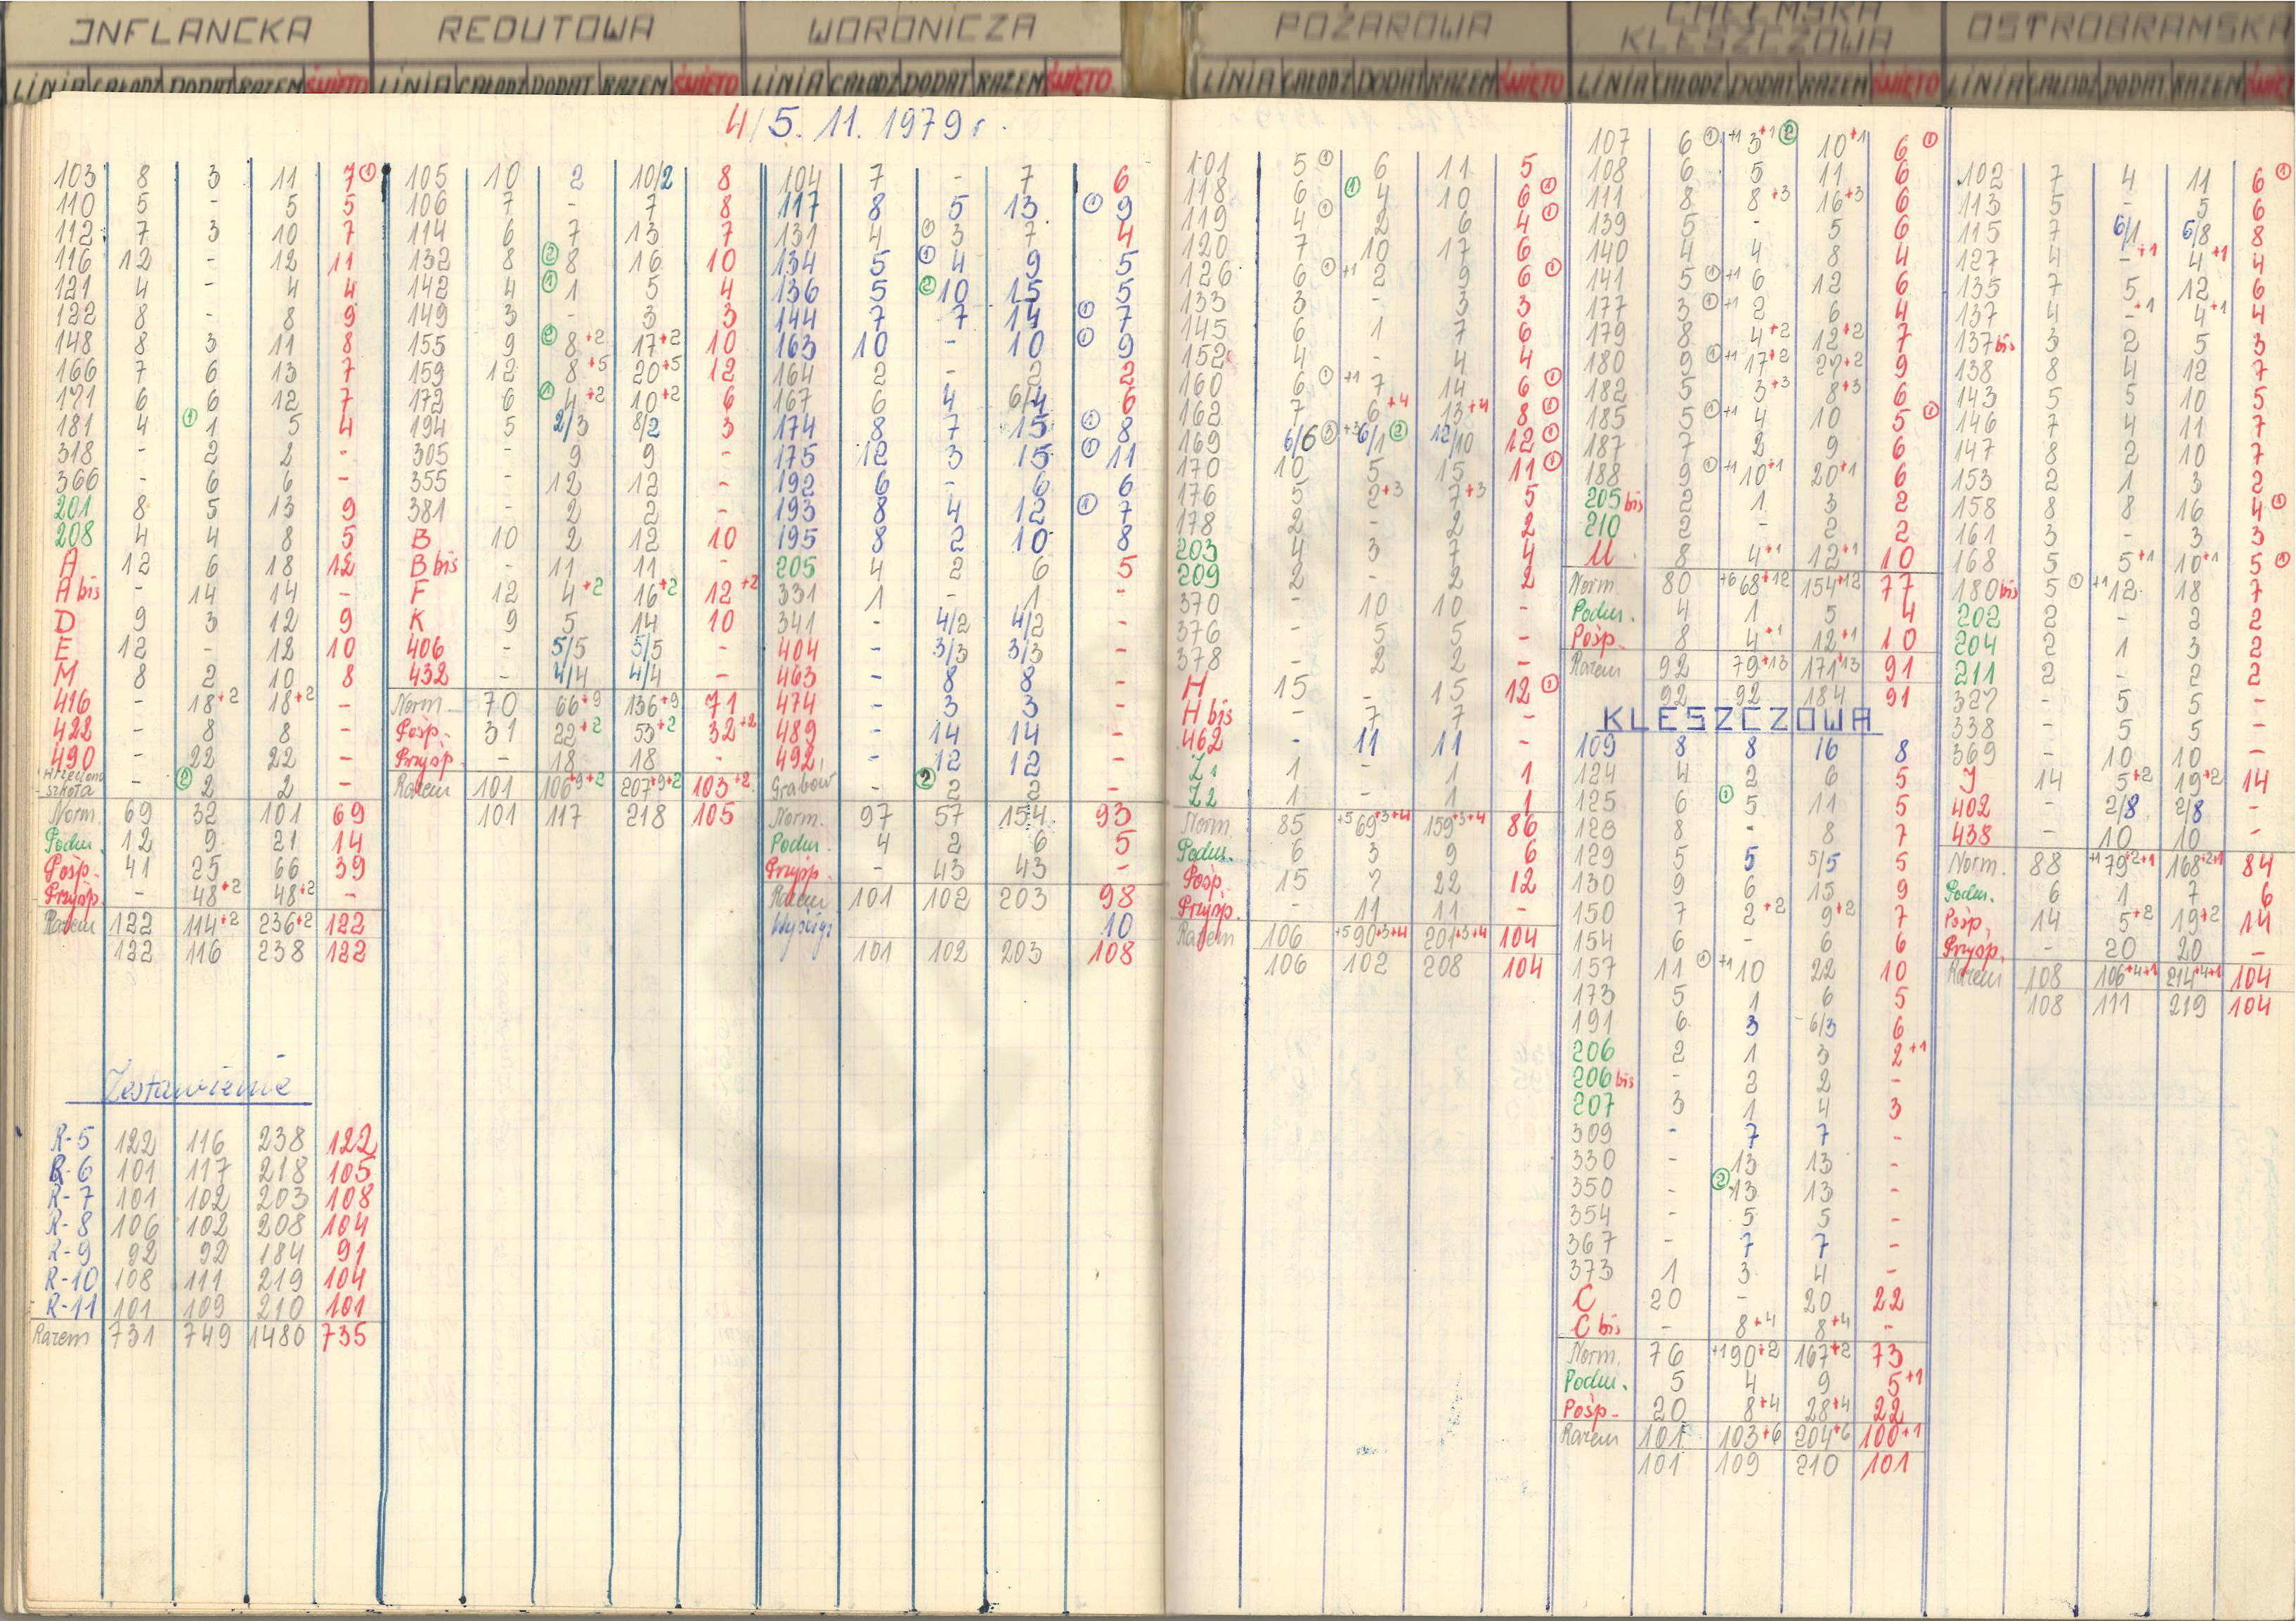 INFLANCKA
LINIA CAŁODZ DODAT RAZEM ŚWIĘTO
103 8 3 11 7 ①
110 5 - 5 5
112 7 3 10 7
116 12 - 12 11
121 4 - 4 4
122 8 - 8 9
148 8 3 11 8
166 7 6 13 7
171 6 6 12 7
181 4 ① 1 5 4
318 - 2 2 -
366 - 6 6 -
201 8 5 13 9
208 4 4 8 5
A 12 6 18 12
A bis - 14 14 -
D 9 3 12 9
E 12 - 12 10
M 8 2 10 8
416 - 18+2 18+2 -
422 - 8 8 -
490 - 22 22 -
Wrzeciono szkoła - ② 2 2 -
Norm. 69 32 101 69
Podm. 12 9 21 14
Pośp. 41 25 66 39
Przysp. - 48+2 48+2 -
Razem 122 114+2 236+2 122
122 116 238 122
Zestawienie
R-5 122 116 238 122
R-6 101 117 218 105
R-7 101 102 203 108
R-8 106 102 208 104
R-9 92 92 184 91
R-10 108 111 219 104
R-11 101 109 210 101
Razem 731 749 1480 735
REDUTOWA
LINIA CAŁODZ DODAT RAZEM ŚWIĘTO
105 10 2 10/2 8
106 7 - 7 8
114 6 7 13 7
132 8 ② 8 16 10
142 4 ① 1 5 4
149 3 - 3 3
155 9 ② 8+2 17+2 10
159 12 8+5 20+5 12
172 6 ① 4+2 10+2 6
194 5 2/3 8/2 3
305 - 9 9 -
355 - 12 12 -
381 - 2 2 -
B 10 2 12 10
B bis - 11 11 -
F 12 4+2 16+2 12+2
K 9 5 14 10
406 - 5/5 5/5 -
432 - 4/4 4/4 -
Norm. 70 66+9 136+9 71
Pośp. 31 22+2 53+2 32+2
Przysp. - 18 18 -
Razem 101 106+9+2 207+9+2 103+2
101 117 218 105
4/5. 11. 1979 r.
WORONICZA
LINIA CAŁODZ DODAT RAZEM ŚWIĘTO
104 7 - 7 6
117 8 5 13 ① 9
131 4 ① 3 7 4
134 5 ① 4 9 5
136 5 ② 10 15 5
144 7 7 14 ① 7
163 10 - 10 ① 9
164 2 - 2 2
167 6 4 6/4 6
174 8 7 15 ① 8
175 12 3 15 ① 11
192 6 - 6 6
193 8 4 12 ① 7
195 8 2 10 8
205 4 2 6 5
331 1 - 1 -
341 - 4/2 4/2 -
404 - 3/3 3/3 -
463 - 8 8 -
474 - 3 3 -
489 - 14 14 -
492 - 12 12 -
Grabów - ② 2 2 -
Norm. 97 57 154 93
Podm. 4 2 6 5
Przysp. - 43 43 -
Razem 101 102 203 98
Wyścigi 10
101 102 203 108
POŻAROWA
LINIA CAŁODZ DODAT RAZEM ŚWIĘTO
101 5 ① 6 11 5
118 6 ① 4 10 6 ①
119 4 ① 2 6 4 ①
120 7 10 17 6
126 6 ① +1 2 9 6 ①
133 3 - 3 3
145 6 1 7 6
152 4 - 4 4
160 6 ① +1 7 14 6 ①
162 7 6+4 13+4 8 ①
169 6/6 ③ +3 6/1 ② 12/10 12 ①
170 10 5 15 11 ①
176 5 2+3 7+3 5
178 2 - 2 2
203 4 3 7 4
209 2 - 2 2
370 - 10 10 -
376 - 5 5 -
378 - 2 2 -
H 15 - 15 12 ①
H bis - 7 7 -
462 - 11 11 -
Z1 1 - 1 1
Z2 1 - 1 1
Norm. 85 +5 69+3+4 159+3+4 86
Podm. 6 3 9 6
Pośp. 15 7 22 12
Przysp. - 11 11 -
Razem 106 +5 90+3+4 201+3+4 104
106 102 208 104
CHEŁMSKA
KLESZCZOWA
LINIA CAŁODZ DODAT RAZEM ŚWIĘTO
107 6 ① +1 3+1 ② 10+1 6 ①
108 6 5 11 6
111 8 8+3 16+3 6
139 5 - 5 6
140 4 4 8 4
141 5 ① +1 6 12 6
177 3 ① +1 2 6 4
179 8 4+2 12+2 7
180 9 ① +1 17+2 27+2 9
182 5 3+3 8+3 6
185 5 ① +1 4 10 5 ①
187 7 2 9 6
188 9 ① +1 10+1 20+1 6
205 bis 2 1 3 2
210 2 - 2 2
U 8 4+1 12+1 10
Norm. 80 +6 68+12 154+12 77
Podm. 4 1 5 4
Pośp. 8 4+1 12+1 10
Razem 92 79+13 171+13 91
92 92 184 91
KLESZCZOWA
109 8 8 16 8
124 4 2 6 5
125 6 ① 5 11 5
128 8 - 8 7
129 5 5 5/5 5
130 9 6 15 9
150 7 2+2 9+2 7
154 6 - 6 6
157 11 ① +1 10 22 10
173 5 1 6 5
191 6 3 6/3 6
206 2 1 3 2+1
206 bis - 2 2 -
207 3 1 4 3
309 - 7 7 -
330 - 13 13 -
350 - ② 13 13 -
354 - 5 5 -
367 - 7 7 -
373 1 3 4 -
C 20 - 20 22
C bis - 8+4 8+4 -
Norm. 76 +1 90+2 167+2 73
Podm. 5 4 9 5+1
Pośp. 20 8+4 28+4 22
Razem 101 103+6 204+6 100+1
101 109 210 101
OSTROBRAMSKA
LINIA CAŁODZ DODAT RAZEM
102 7 4 11 6 ①
113 5 - 5 6
115 7 6/1 6/8 8
127 4 -+1 4+1 4
135 7 5 12 6
137 4 -+1 4+1 4
137 bis 3 2 5 3
138 8 4 12 7
143 5 5 10 5
146 7 4 11 7
147 8 2 10 7
153 2 1 3 2
158 8 8 16 4 ①
161 3 - 3 3
168 5 5+1 10+1 5 ①
180 bis 5 ① +1 12 18 7
202 2 - 2 2
204 2 1 3 2
211 2 - 2 2
327 - 5 5 -
338 - 5 5 -
369 - 10 10 -
J 14 5+2 19+2 14
402 - 2/8 2/8 -
438 - 10 10 -
Norm. 88 +1 79+2+1 168+2+1 84
Podm. 6 1 7 6
Pośp. 14 5+2 19+2 14
Przysp. - 20 20 -
Razem 108 106+4+1 214+4+1 104
108 111 219 104